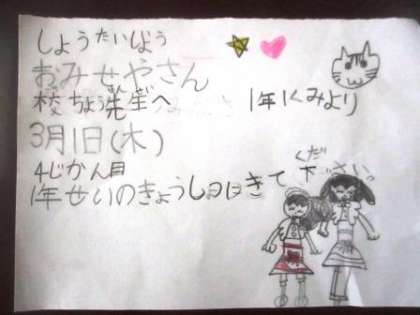 しょうたいじょう
おみせやさん
校ちょう先生へ
1年1くみより
3月1日(木)
4じかん目
1年せいのきょうしつにきて下ください。